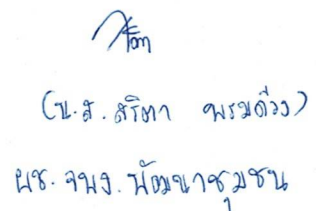 สริตา
(น.ส. สริตา พรมด้วง)
ผช. จพง. พัฒนาชุมชน